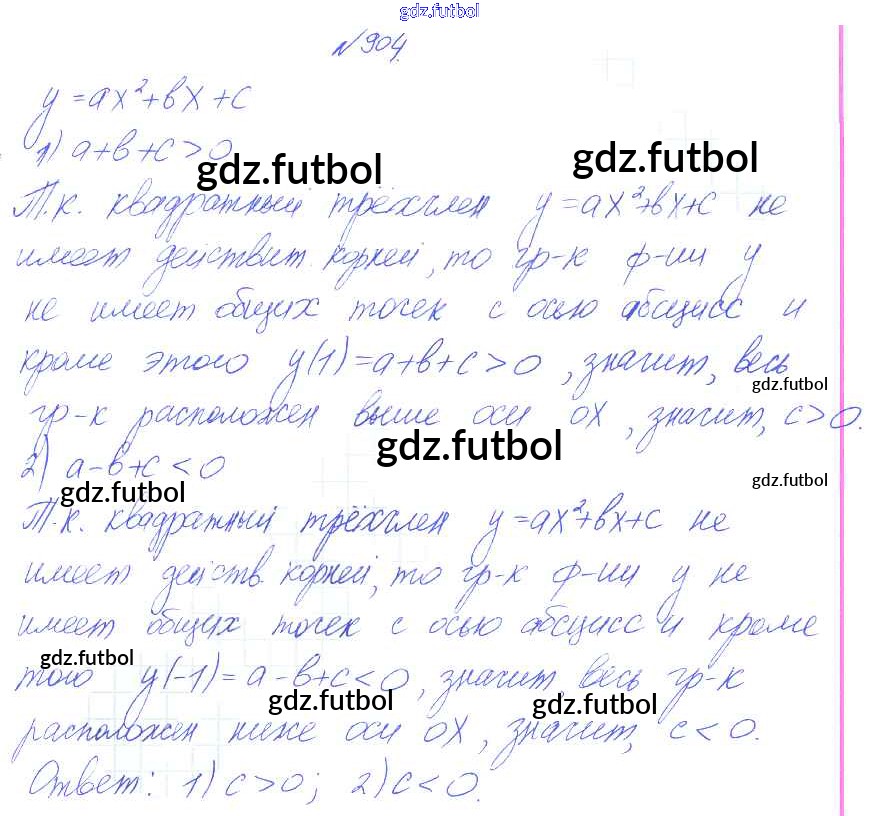 gdz.futbol
№904.
y=ax²+вx+c
1) a+в+c>0
gdz.futbol gdz.futbol
Т.к. квадратный трёхчлен y=ax²+вx+c не
имеет действит. корней, то гр-к ф-ии y
не имеет общих точек с осью абсцисс и
кроме этого y(1)=a+в+c>0, значит, весь
gdz.futbol
гр-к расположен выше оси OX, значит, c>0.
gdz.futbol
2) a-в+c<0
gdz.futbol gdz.futbol
Т.к. квадратный трёхчлен y=ax²+вx+c не
имеет действ. корней, то гр-к ф-ии y не
имеет общих точек с осью абсцисс и кроме
gdz.futbol
того y(-1)=a-в+c<0, значит, весь гр-к
gdz.futbol gdz.futbol
расположен ниже оси OX, значит, c<0.
Ответ: 1) c>0; 2) c<0.